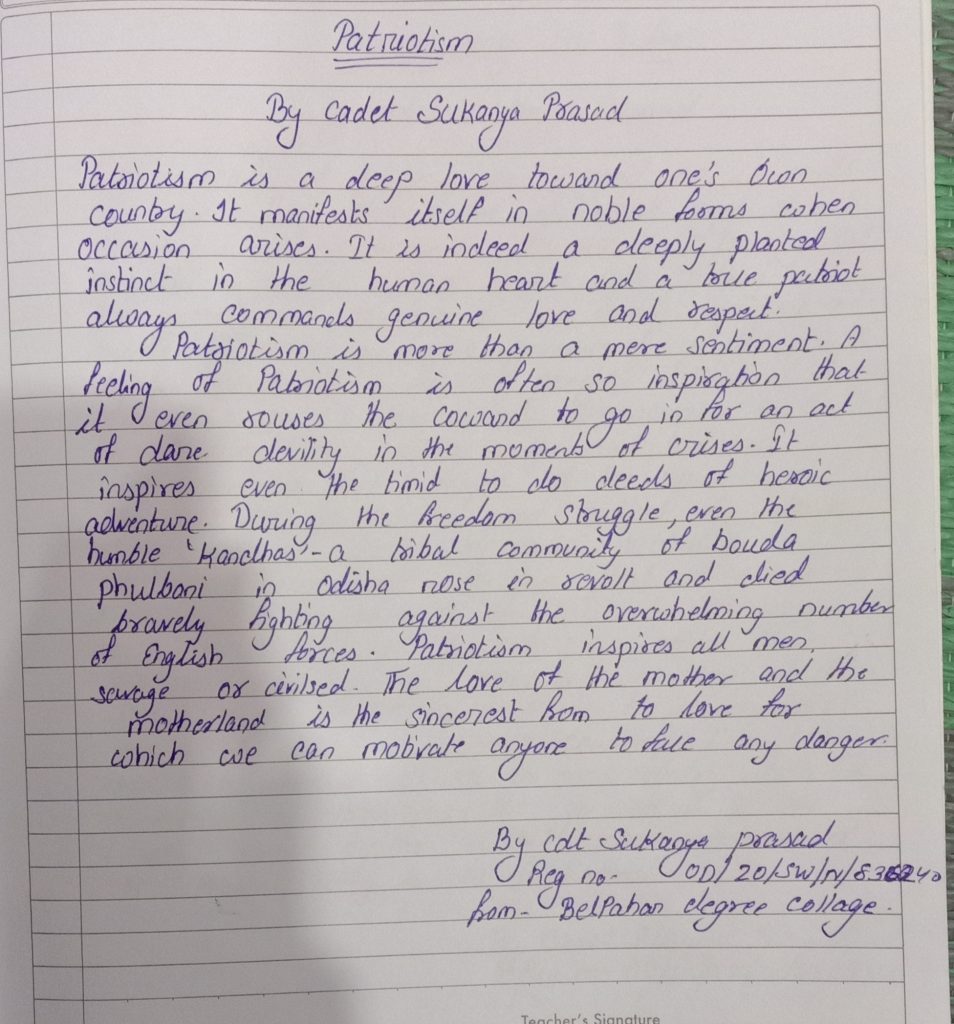 Patriotism
By Cadet Sukanya Prasad
Patriotism is a deep love toward one's own
country. It manifests itself in noble forms when
occasion arises. It is indeed a deeply planted
instinct in the human heart and a true patriot
always commands genuine love and respect.
Patriotism is more than a mere sentiment. A
feeling of Patriotism is often so inspiration that
it even rouses the coward to go in for an act
of dare devility in the moments of crises. It
inspires even the timid to do deeds of heroic
adventure. During the freedom struggle, even the
humble 'Kandhas'-a tribal community of bouda
phulbani in odisha rose in revolt and died
bravely fighting against the overwhelming number
of English forces. Patriotism inspires all men,
savage or civilsed. The love of the mother and the
motherland is the sincerest from to love for
which we can motivate anyone to face any danger.
By cdt Sukanya prasad
Reg no- OD/20/SW/N/
from- BelPahar degree collage.
Teacher's Signature